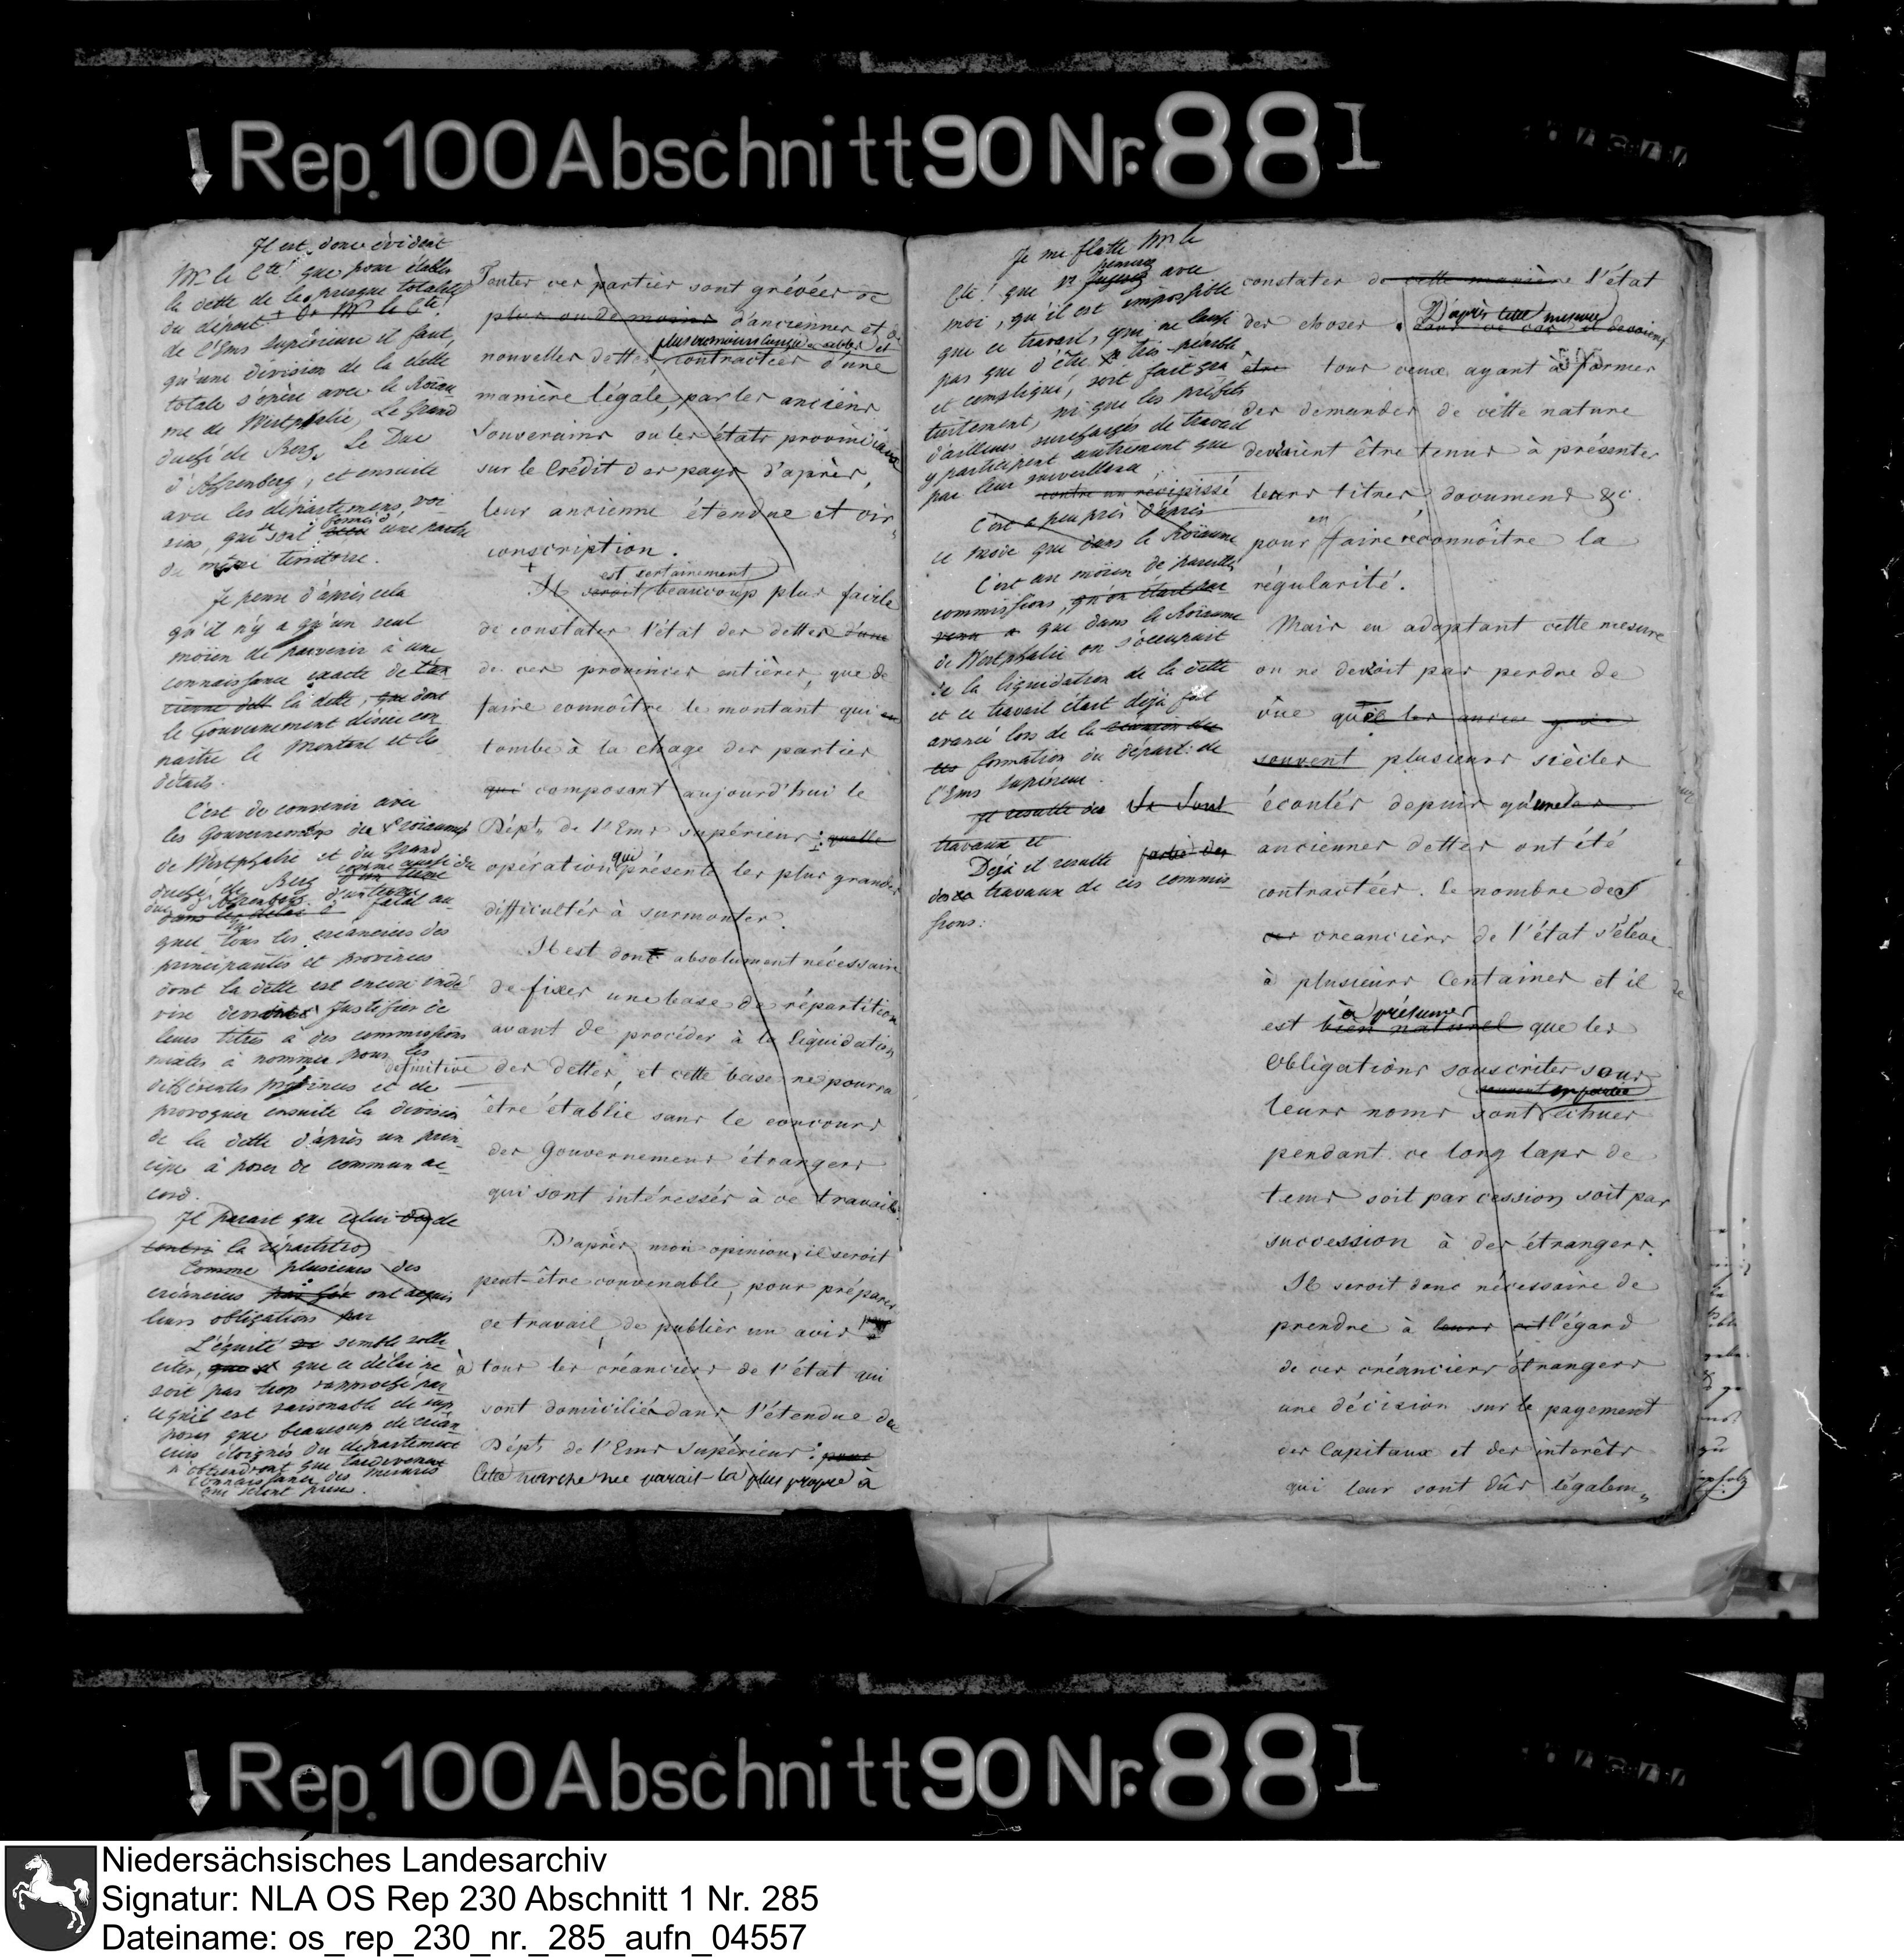 Rep. 100 Abschnitt 90 Nr. 88 I
Il est donc évident
Mr. le Cte! que pour établir
la dette de la presque totalité
du départ. + Or Mr le Cte!
de l'Ems supérieur il faut,
qu'une division de la dette
totale s'opère avec le Roiau
me de Westphalie, Le Grand
duché de Berg, Le Duc
d'Ahrenberg, et ensuite
avec les départemens voi
sins, qui se sont formés une partie
du même territoire.
Je pense d'après cela
qu'il n'y a qu'un seul
moïen de parvenir à une
connaissance exacte de l'an
cienne dett la dette, que dont
le Gouvernement désire con
naitre le Montant et les
détails.
C'est de convenir avec
les Gouvernemens du Roiaume
de Westphalie et du Grand
duché de Berg comme aussi du
duc d'Ahrenberg d'un terme
dans les délai fatal au-
quel tous les créanciers des
principautés et provinces
dont la dette est encore indi
vise devroient justifier de
leurs titres à des commissions
mixtes à nommer pour les
différentes provinces et de
définitive
provoquer ensuite la division
de la dette d'après un prin-
cipe à poser de commun ac-
cord.
Il parait que celui de
la répartition
Comme plusieurs des
créanciers ont acquis
leurs obligations par
L'équité semble solli
citer, que ce délai ne
soit pas trop rapproché par
ce qu'il est raisonable de sup
poser que beaucoup de créan
ciers éloignés du département
n'obtiendront que tardivement
connaissance des mesures
qui seront prises.
Toutes ces parties sont grévées de
plus ou de moins d'anciennes et de
nouvelles dettes, plus ou moins considérables et
contractées d'une
manière légale, par les anciens
Souverains ou les états provinciaux
sur le Crédit des pays d'après,
leur ancienne étendue et cir
conscription.
+ est certainement
Il seroit beaucoup plus facile
de constater l'état des dettes d'une
de ces provinces entières, que de
faire connoître le montant qui en
tombe à la charge des parties
qui composent aujourd'hui le
Dépt. de l'Ems supérieur: quelle
opération qui présente les plus grandes
difficultés à surmonter.
Il est donc absolument nécessaire
de fixer une base de répartition
avant de procéder à la liquidation
des dettes, et cette base ne pourra
être établie sans le concours
des Gouvernemens étrangers
qui sont intéressés à ce travail.
D'après mon opinion, il seroit
peut-être convenable, pour préparer
ce travail, de publier un avis
à tous les créanciers de l'état qui
sont domiciliés dans l'étendue du
Dépt. de l'Ems supérieur: pour
Cette marche me parait la plus propre à
Je me flatte Mr. le
Cte! que V. jugerez penserez avec
moi, qu'il est impossible
que ce travail, qui ne laisse
pas que d'être très pénible
et compliqué, soit fait gra
tuitement, ni que les préfets
d'ailleurs surchargés de travail
y participent autrement que
par leur surveillance.
contre un récépissé
C'est à peu près d'après
ce mode que dans le Roïaume
C'est au moïen de pareilles
commissions, qu'on étoit par
venu à que dans le Roïaume
de Westphalie on s'occupait
de la liquidation de la dette
et ce travail étoit déjà fort
avancé lors de la réunion des
formation du départ: de
l'Ems supérieur.
Il resulte des
travaux et
Déjà il resulte
des travaux de ces commis-
sions:
constater de cette manière l'état
des choses. D'après cette mesure
505
être tous ceux, ayant à former
des demandes de cette nature
devroient être tenus à présenter
leurs titres, documens &c.
pour en faire reconnoître la
régularité.
Mais en adoptant cette mesure
on ne devroit pas perdre de
vüe que
souvent plusieurs siècles
écoulés depuis que les
anciennes dettes ont été
contractées. Le nombre des
ces creanciers de l'état s'élève
à plusieurs Centaines et il
est bien naturel à présumer que les
obligations souscrites sous
souvent en partie
leurs noms sont échues
pendant ce long laps de
tems soit par cession soit par
succession à des étrangers.
Il seroit donc nécessaire de
prendre à l'égard
de ces créanciers étrangers
une décision sur le payement
des Capitaux et des intérêts
qui leur sont dûs légalem,
Rep. 100 Abschnitt 90 Nr. 88 I
Niedersächsisches Landesarchiv
Signatur: NLA OS Rep 230 Abschnitt 1 Nr. 285
Dateiname: os_rep_230_nr._285_aufn_04557